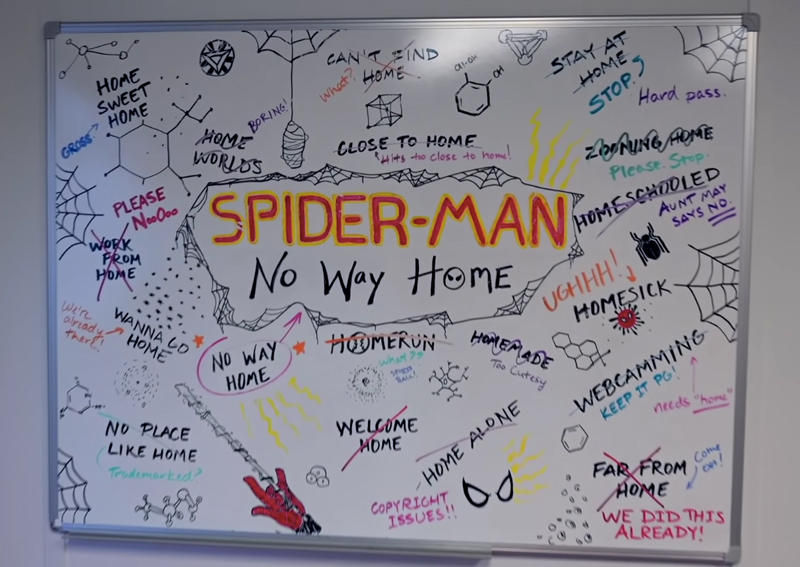 CAN'T FIND
HOME
What?
STAY AT
HOME
STOP
Hard pass.
HOME
SWEET
HOME
GROSS
CH₂OH
OH
BORING!
HOME
WORLDS
CLOSE TO HOME
*Hits too close to home!
ZOONING HOME
Please. Stop.
HOMESCHOOLED
AUNT MAY
SAYS NO.
PLEASE
NooOoo
WORK
FROM
HOME
SPIDER-MAN
No Way Home
UGHHH!
HOMESICK
We're
already
there!!
WANNA GO
HOME
NO WAY
HOME
HOOMERUN
what??
SPIDER
BALL!
HOMEMADE
Too Cutesy
WEBCAMMING
KEEP IT PG!
needs "home"
NO PLACE
LIKE HOME
Trademarked?
WELCOME
HOME
HOME ALONE
COPYRIGHT
ISSUES!!
FAR FROM
HOME
Come
on!
WE DID THIS
ALREADY!